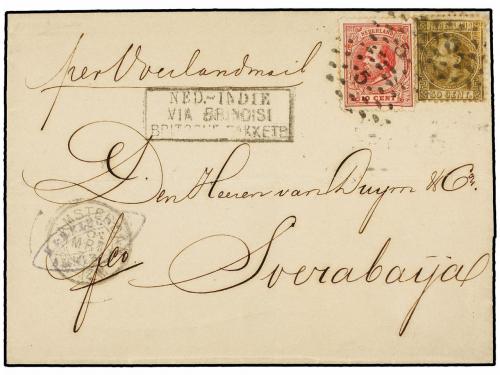 per Overlandmail
NEDERLAND
10 CENT
NED.-INDIE
VIA BRINDISI
BRITSCHE PAKKETB.
Den Heeren van Duym & Co.
fco Soerabaija
AMSTERDAM